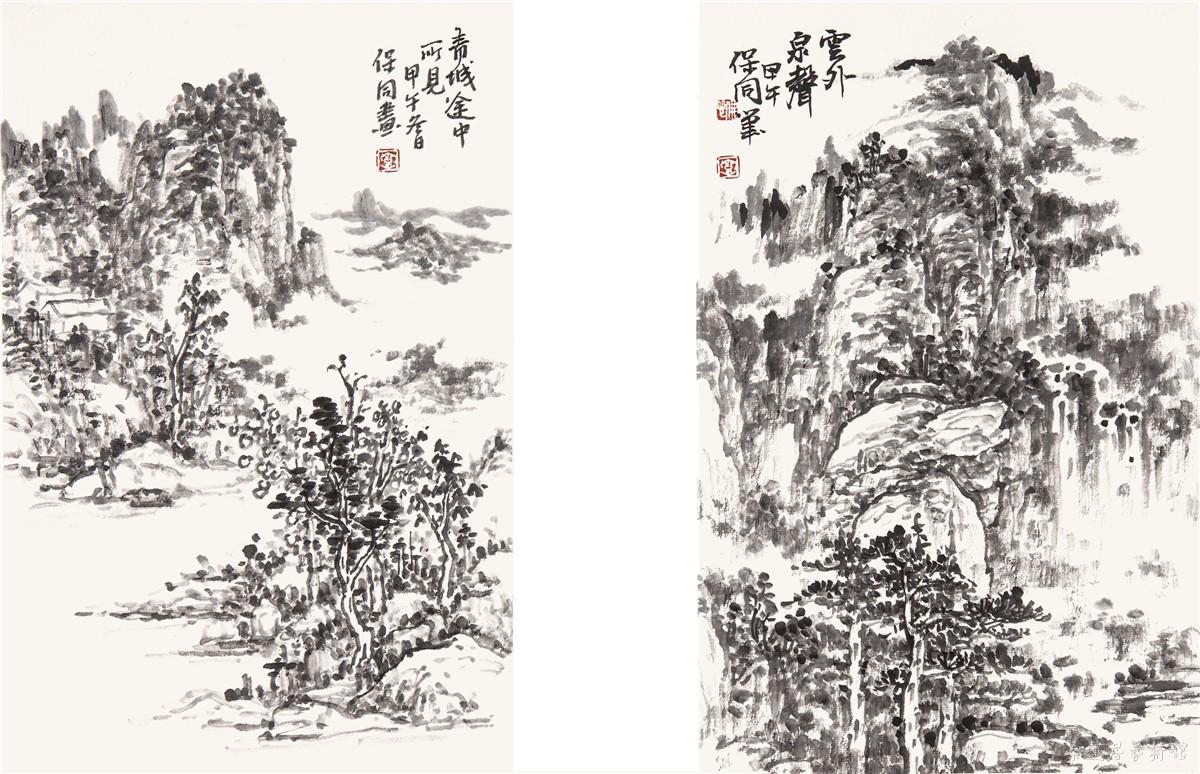 青城途中
所見
甲午冬日
保同畫
雲外
泉聲
甲午
保同筆